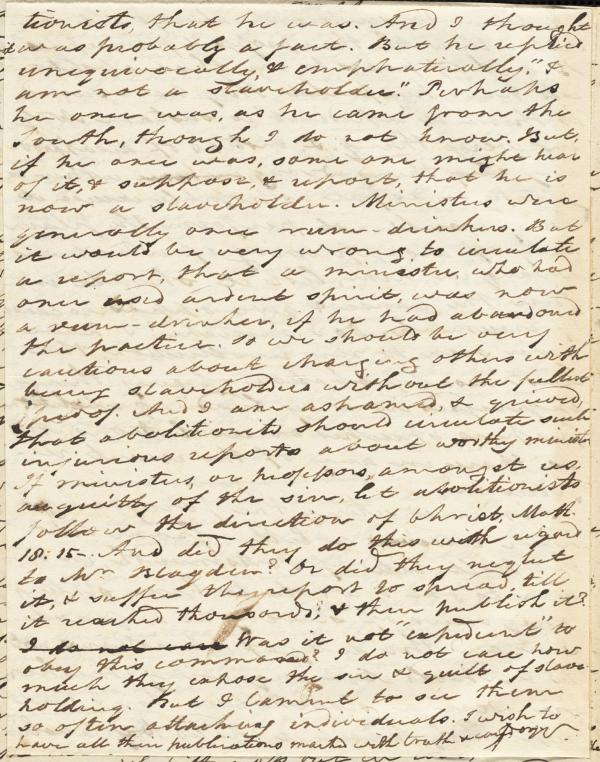 tionists, that he was. And I thought
it was probably a fact. But he replied
unequivocally, & emphatically, "I
am not a slaveholder." Perhaps
he once was, as he came from the
South, though I do not know. But,
if he once was, some one might hear
of it, & suppose, & report, that he is
now a slaveholder. Ministers were
generally once rum-drinkers. But
it would be very wrong to circulate
a report, that a minister, who had
once used ardent spirit, was now
a rum-drinker, if he had abandoned
the practice. So we should be very
cautious about charging others with
being slaveholders without the fullest
proof. And I am ashamed, & grieved,
that abolitionists should circulate such
injurious reports about worthy ministers
If ministers, or professors, amongst us,
are guilty of the sin, let abolitionists
follow the direction of Christ, Math.
18:15. And did they do this with regard
to Mr. Blagden? Or did they neglect
it, & suffer the report to spread till
it reached thousands, & then publish it?
I do not care Was it not "expedient" to
obey this command? I do not care how
much they expose the sin & guilt of slave-
holding. But I lament to see them
so often attacking individuals. I wish to
have all their publications marked with truth &